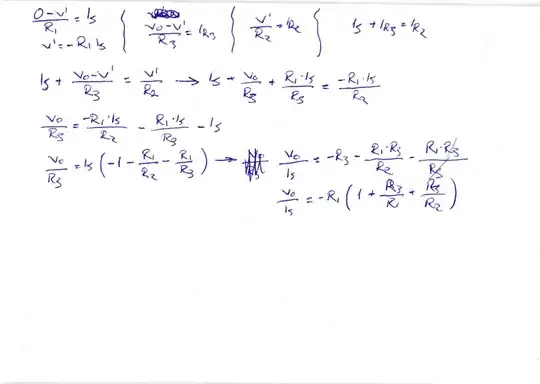 (0-v')/R1 = Is { (v0-v')/R3 = IR3 { v'/R2 = IR2 { Is + IR3 = IR2
v' = -R1 Is
Is + (v0-v')/R3 = v'/R2 → Is + v0/R3 + (R1·Is)/R3 = (-R1·Is)/R2
v0/R3 = (-R1·Is)/R2 - (R1·Is)/R3 - Is
v0/R3 = Is (-1 - R1/R2 - R1/R3) → v0/Is = -R3 - (R1·R3)/R2 - (R1·R3)/R3
v0/Is = -R1 (1 + R3/R1 + R3/R2)